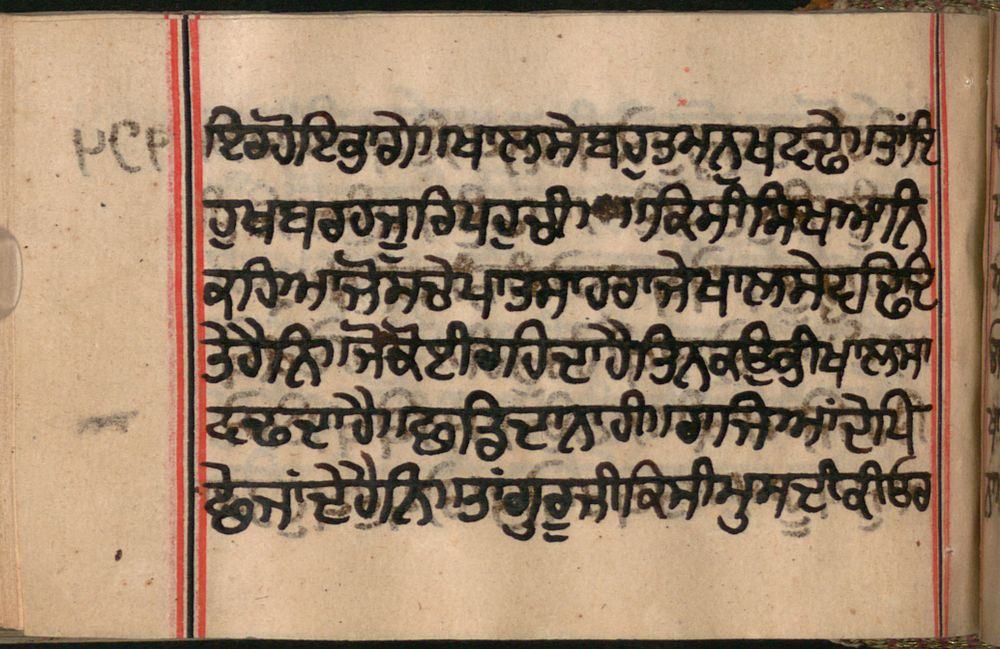 ਇਰਹੋਇਭਾਗੇ॥ਖਾਲਸੇਬਹੁਤਮਨੁਖਵਢੇ॥ਤਾਂਇ
ਹੁਖਬਰਹਜੂਰਿਪਹੁਚੀ॥ਕਿਸੀਸਿਖਆਨਿ
ਕਹਿਆਜੋਸਚੇਪਾਤਸਾਹਰਾਜੇਖਾਲਸੇਵਢਿਦਿ
ਤੇਹੈਨਿ॥ਜੋਕੋਈਰਹਿਦਾਹੈਤਿਨਕਉਭੀਖਾਲਸਾ
ਵਢਦਾਹੈ॥ਛਾਡਿਦਾਨਾਹੀ॥ਰਾਜਿਆਂਦੇਪਿ
ਛੇਜਾਂਦੇਹੈਨਿ॥ਤਾਂਗੁਰੂਜੀਕਿਸੀਮੁਸਦੀਕੀਓਰ